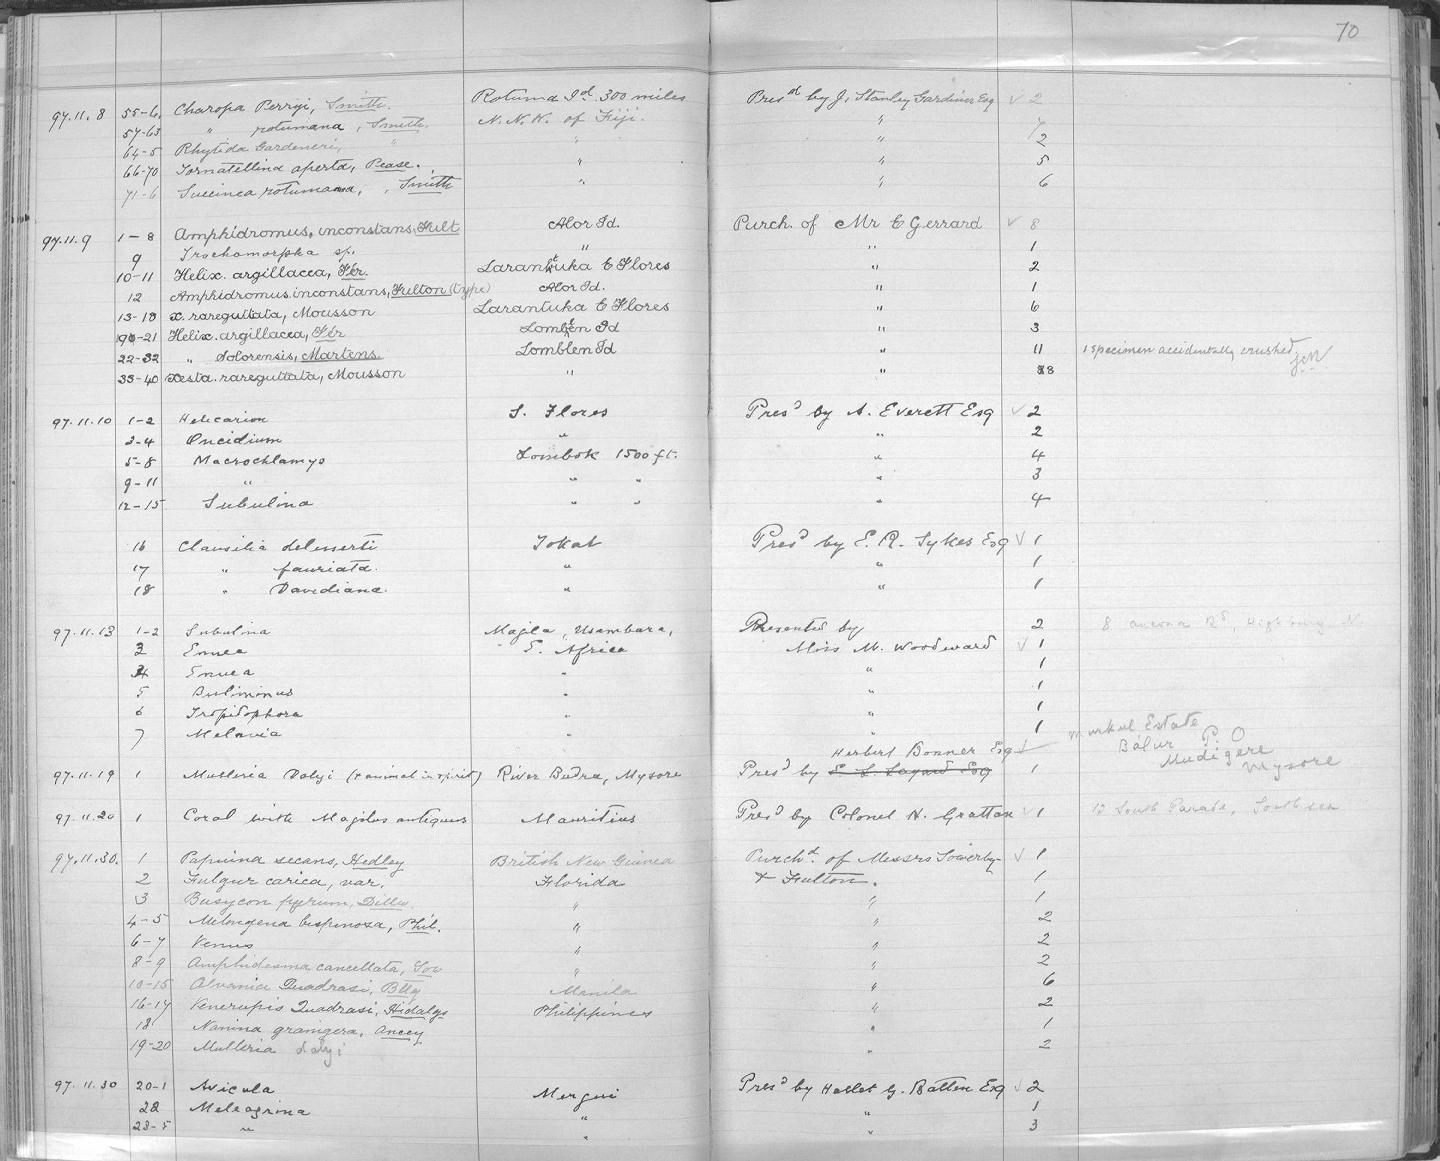 70
97.11.8 55-6. Charopa Perryi, Smith. Rotuma Id. 300 miles Presd by J. Stanley Gardiner Esq 2
57-63 " rotumana, Smith. N.N.W. of Fiji. " 7
64-5 Rhytida Gardeneri, " " " 2
66-70 Tornatellina aperta, Pease. " " 5
71-6 Succinea rotumana, Smith " " 6
97.11.9 1-8 Amphidromus, inconstans, Fult Alor Id. Purch. of Mr E Gerrard 8
9 Trochomorpha sp. " " 1
10-11 Helix. argillacea, Fér. Larantuka E Flores " 2
12 Amphidromus. inconstans, Fulton (type) Alor Id. " 1
13-18 X. rareguttata, Mousson Larantuka E Flores " 6
19-21 Helix. argillacea, Fér Lomblen Id " 3
22-32 " Solorensis, Martens. Lomblen Id " 11 1 specimen accidentally crushed
33-40 Xesta. rareguttata, Mousson " " 8
97.11.10 1-2 Helicarion S. Flores Presd by A. Everett Esq 2
3-4 Oncidium " " 2
5-8 Macrochlamys Lombok 1500 ft. " 4
9-11 " " " " 3
12-15 Subulina " " " 4
16 Clausilia delesserti Tokat Presd by E. R. Sykes Esq 1
17 " fauriata. " " 1
18 " Davidiana. " " 1
97.11.13 1-2 Subulina Magila, Usambara, Presented by 2 8 Ancona Rd, Highbury N.
3 Ennea E. Africa Miss M. Woodward 1
4 Ennea " " 1
5 Buliminus " " 1
6 Tropidophora " " 1
7 Melania " " 1
Herbert Bonner Esq Murkul Estate
Bálur P.O
Mudigere
Mysore
97.11.19 1 Mulleria Dalyi (+ animal in spirit) River Budra, Mysore Presd by E. L. Layard Esq 1
97.11.20 1 Coral with Magilus antiquus Mauritius Presd by Colonel H. Grattan 1 12 South Parade, Southsea
97.11.30. 1 Papuina secans, Hedley British New Guinea Purchd. of Messrs Sowerby 1
2 Fulgur carica, var. Florida + Fulton. 1
3 Busycon pyrum, Dillw. " " 1
4-5 Melongena bispinosa, Phil. " " 2
6-7 Venus " " 2
8-9 Amphidesma cancellata, Sow " " 2
10-15 Alvania Quadrasi, Bttg Manila " 6
16-17 Venerupis Quadrasi, Hidalgo Philippines " 2
18 Nanina granigera, Ancey " 1
19-20 Mulleria dalyi " 2
97.11.30 20-1 Avicula Mergui Presd by Hallet G. Batten Esq 2
22 Meleagrina " " 1
23-5 " " " 3